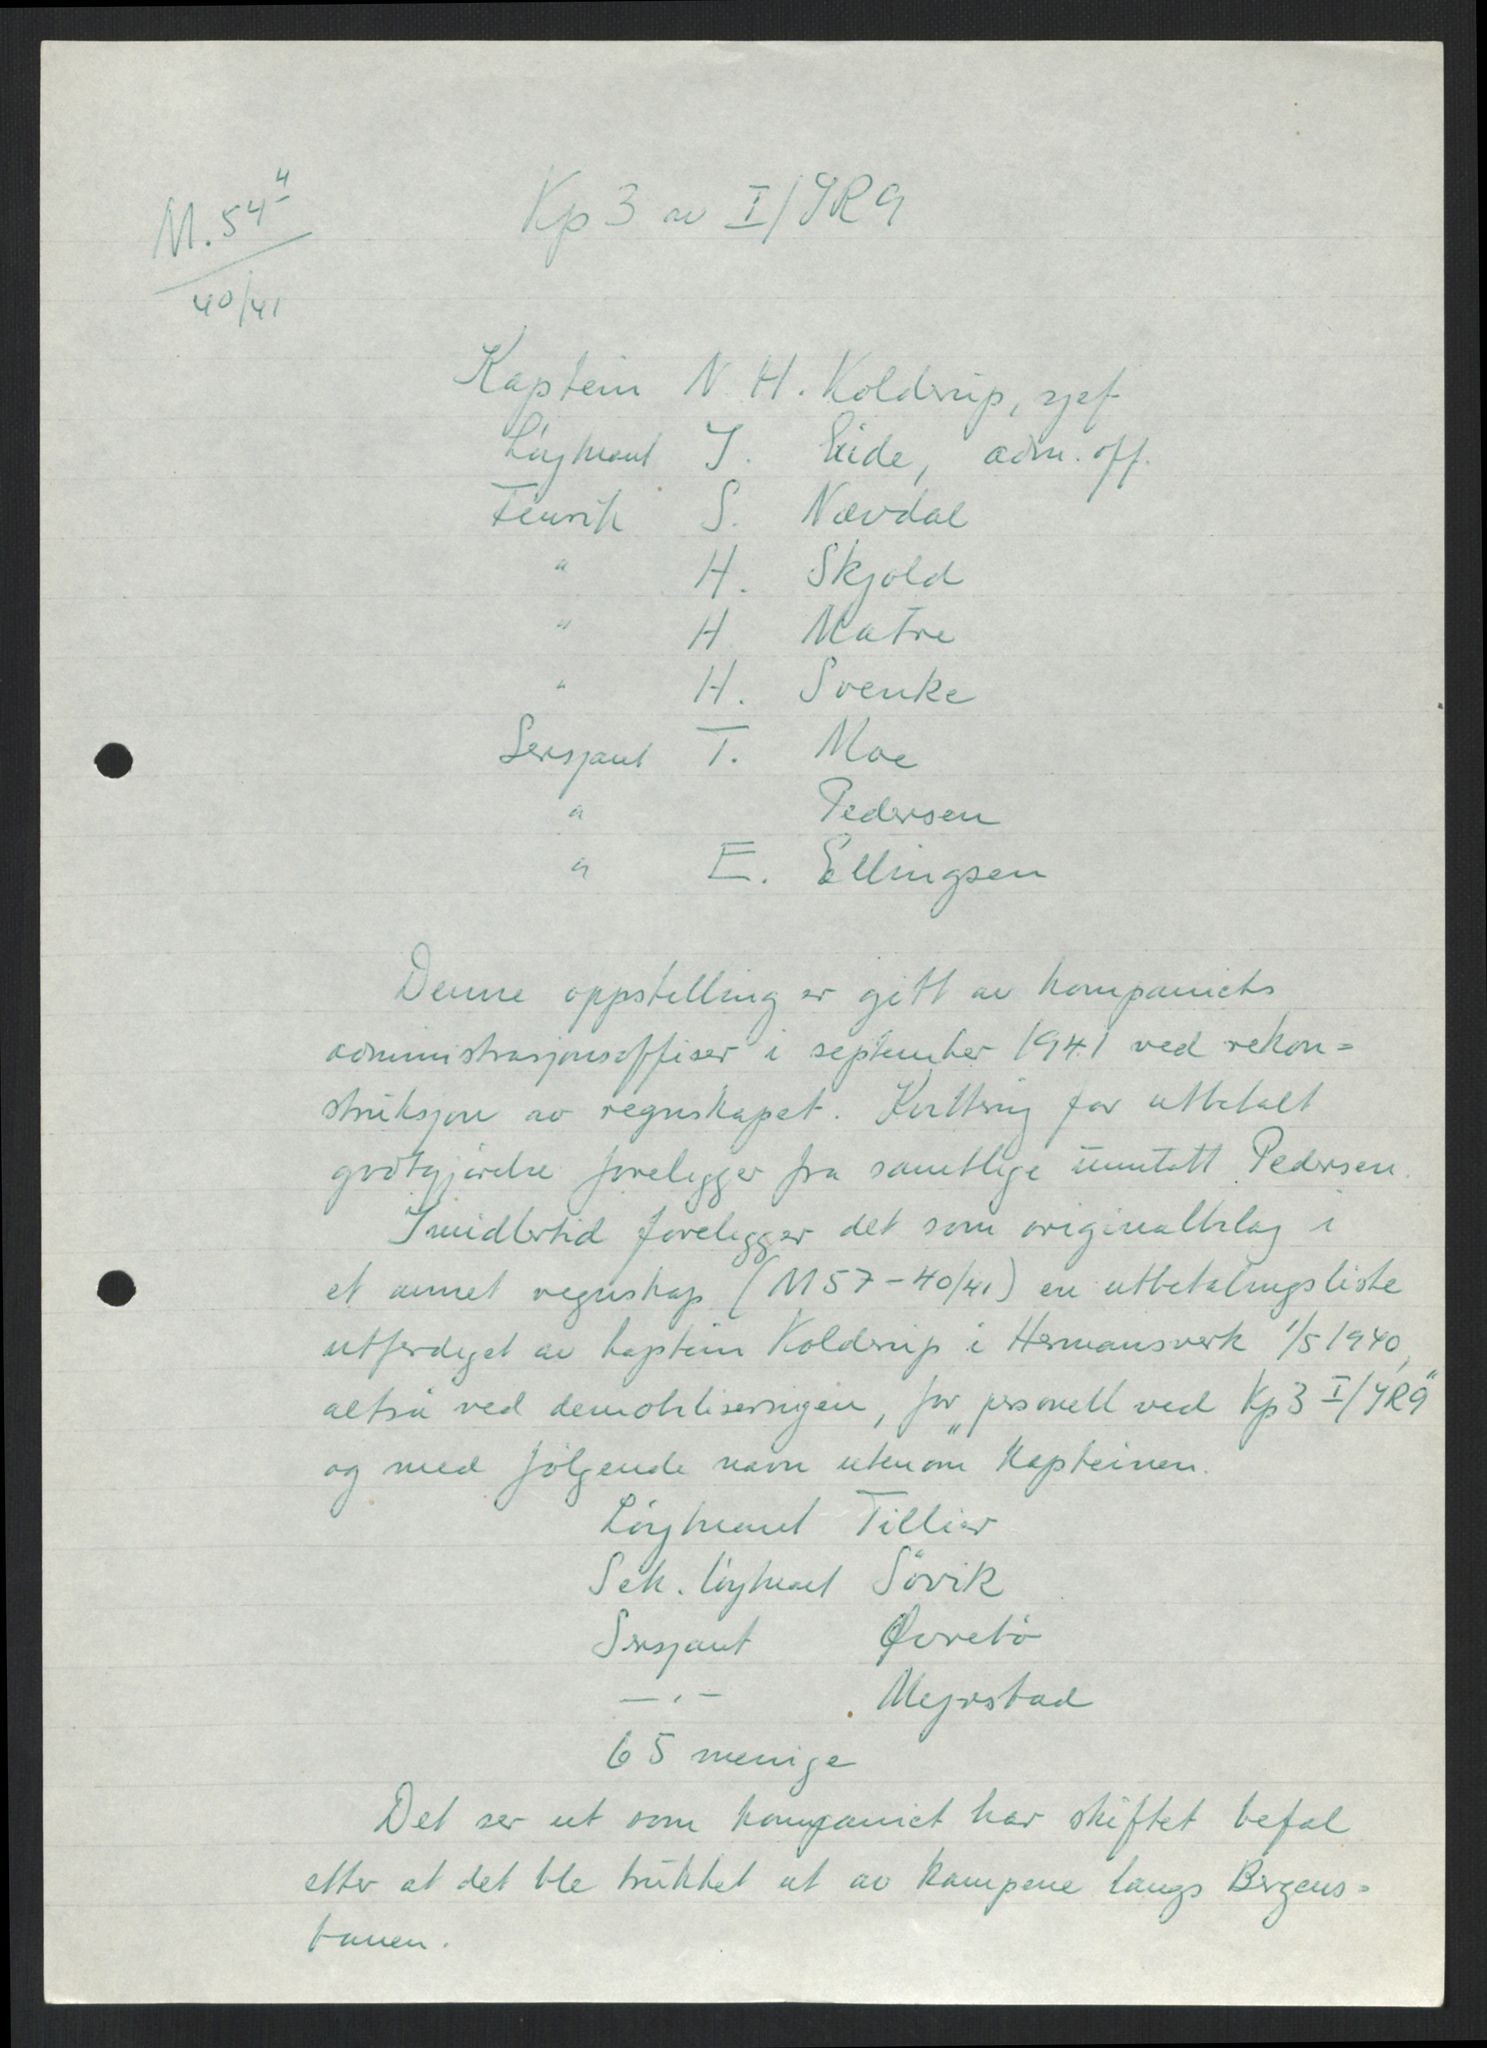 M. 54 4
40/41
Kp 3 av I/IR 9
Kaptein N. H. Koldrup, sjef
Löytnant I. Eide, adm. off.
Fenrik S. Nævdal
" H. Skjold
" H. Matre
" H. Svenke
Sersjant T. Moe
" Pedersen
" E. Ellingsen
Denne oppstilling er gitt av kompaniets
administrasjonsoffiser i september 1941 ved rekon=
struksjon av regnskapet. Kvittring for utbetalt
godtgjörelse foreligger fra samtlige unntatt Pedersen.
Imidlertid foreligger det som originalbilag i
et annet regnskap (M 57 - 40/41) en utbetalingsliste
utferdiget av kaptein Koldrup i Hermansverk 1/5 1940,
altså ved demobiliseringen, for „personell ved Kp 3 I/IR 9"
og med følgende navn utenom kapteinen.
Löytnant Tillier
Sek. löytnant Sövik
Sersjant Øvretö
— " — Myrstad
65 menige
Det ser ut som kompaniet har skiftet befal
etter at det ble trukket ut av kampene langs Bergens=
banen.